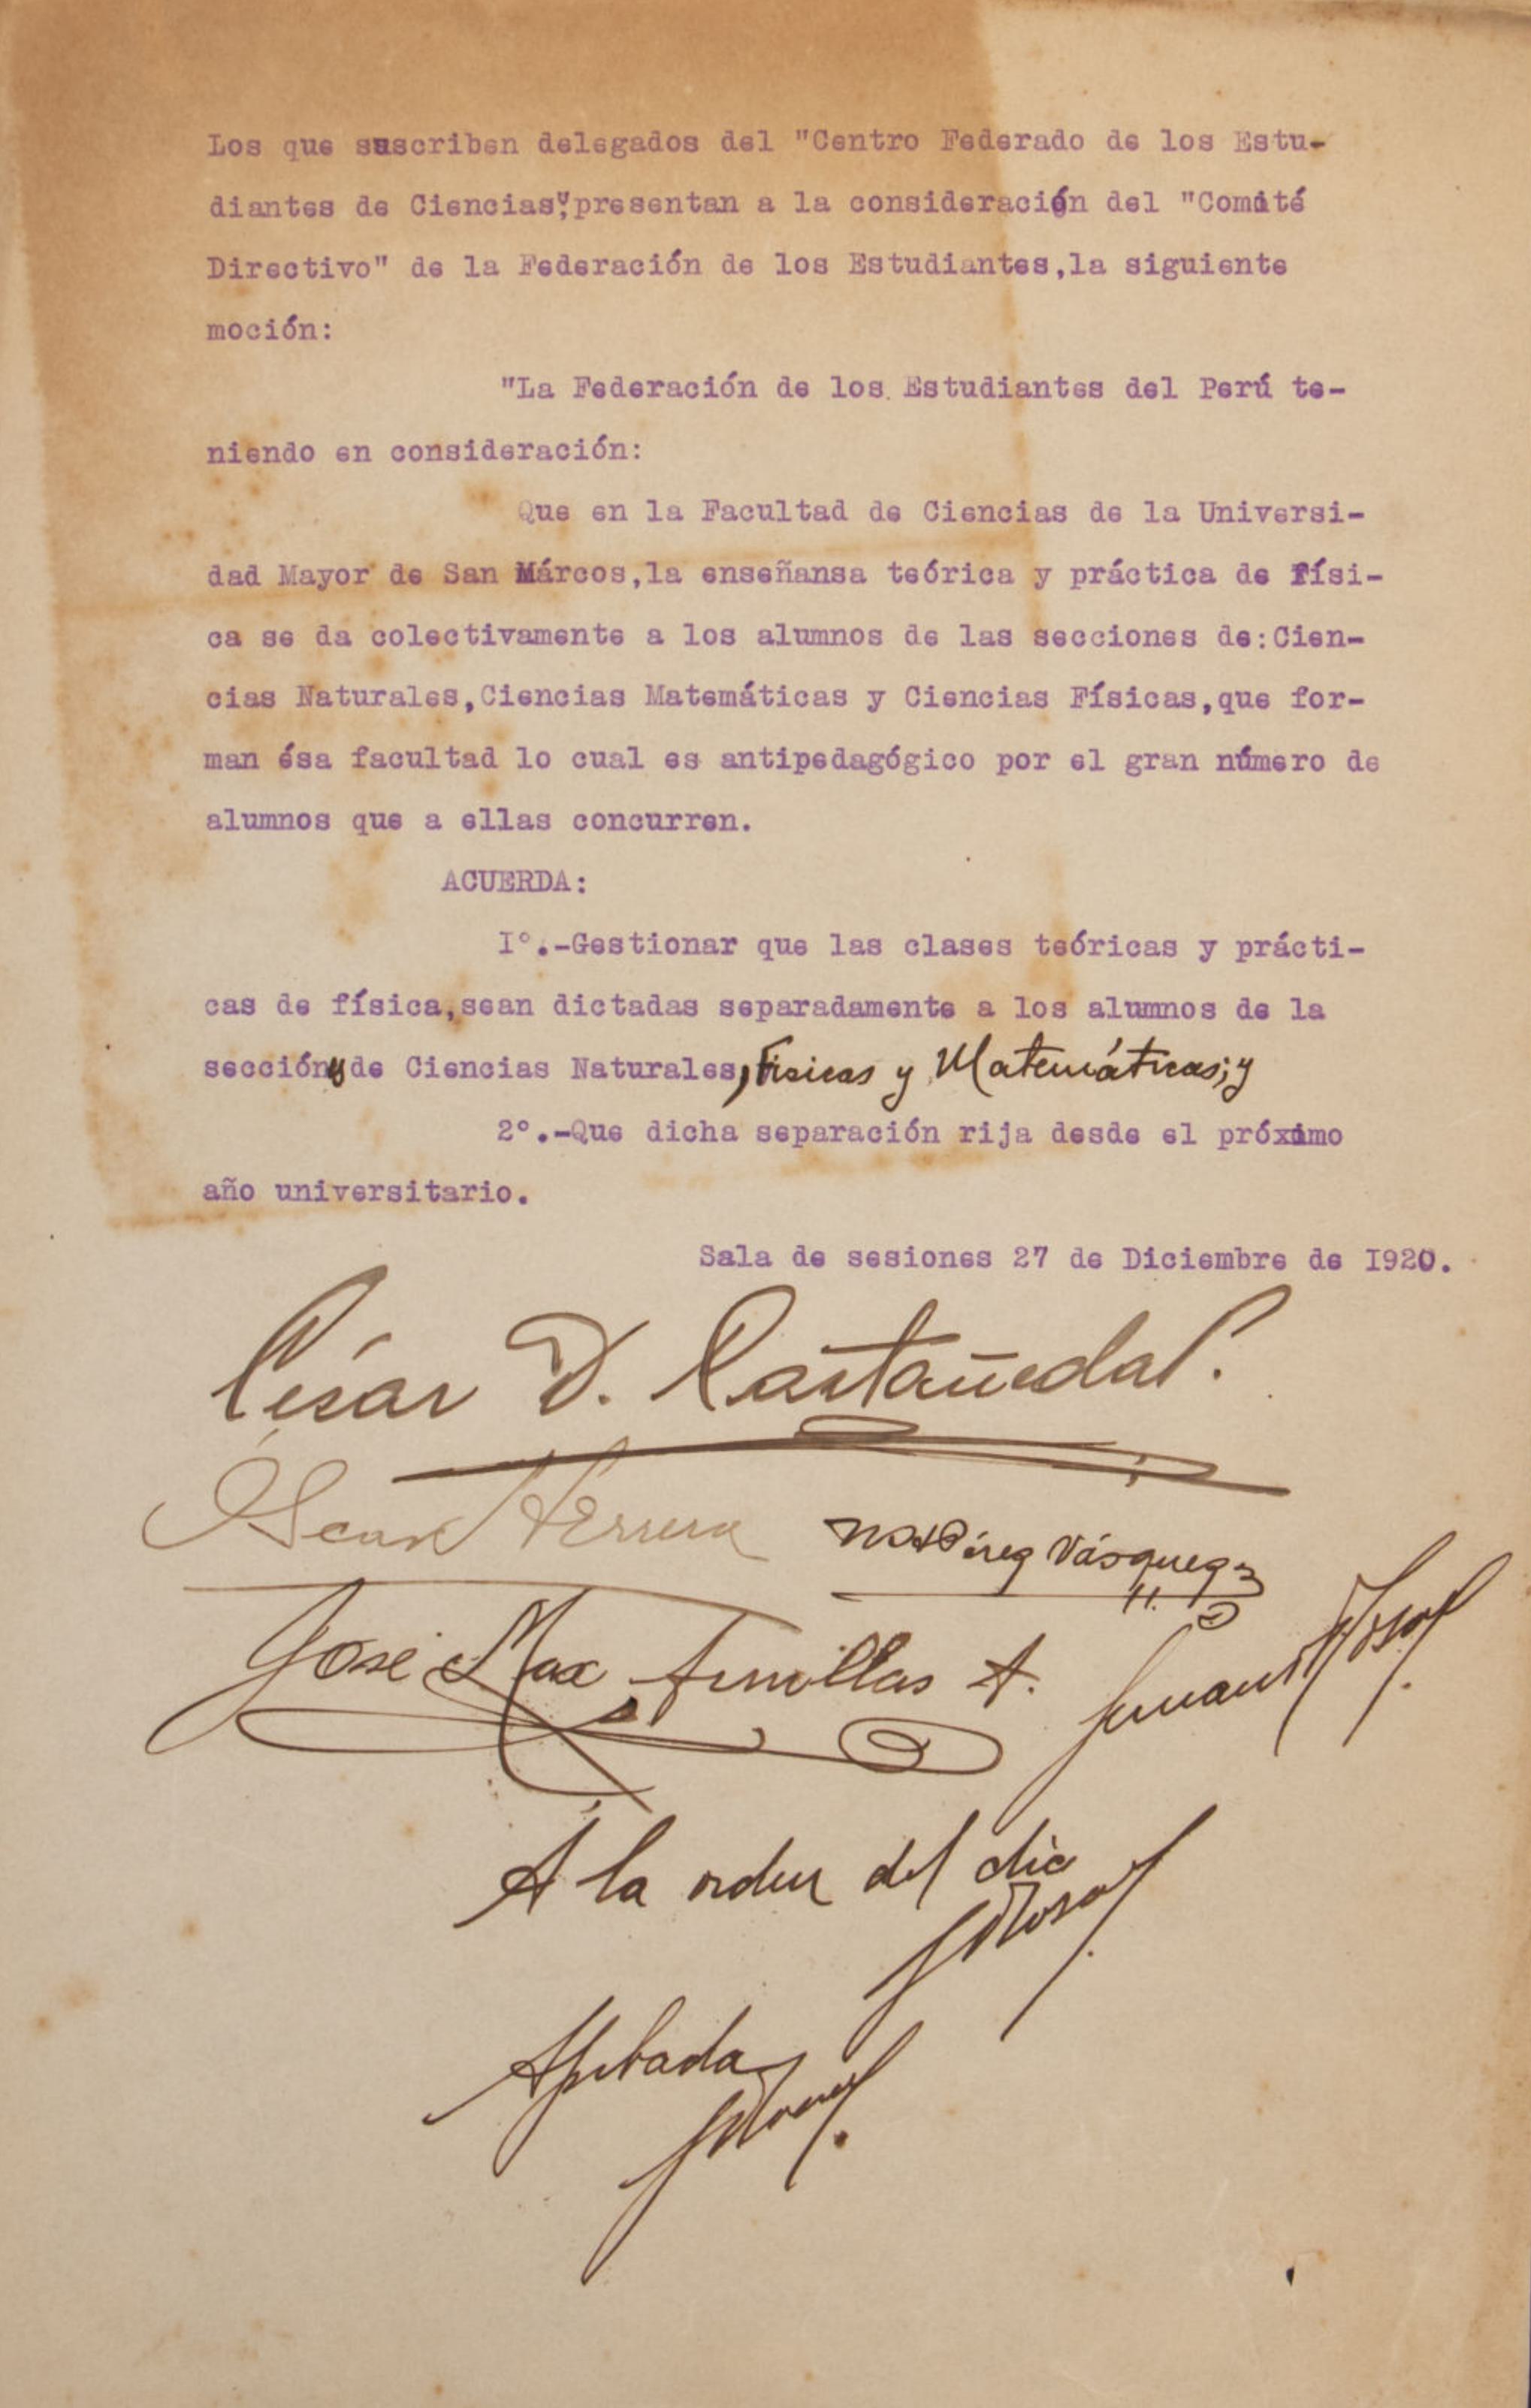 Los que suscriben delegados del "Centro Federado de los Estu-
diantes de Ciencias", presentan a la consideración del "Comité
Directivo" de la Federación de los Estudiantes,la siguiente
moción:
"La Federación de los Estudiantes del Perú te-
niendo en consideración:
Que en la Facultad de Ciencias de la Universi-
dad Mayor de San Márcos,la enseñansa teórica y práctica de físi-
ca se da colectivamente a los alumnos de las secciones de:Cien-
cias Naturales,Ciencias Matemáticas y Ciencias Físicas,que for-
man ésa facultad lo cual es antipedagógico por el gran número de
alumnos que a ellas concurren.
ACUERDA:
I°.-Gestionar que las clases teóricas y prácti-
cas de física,sean dictadas separadamente a los alumnos de la
sección de Ciencias Naturales, Fisicas y Matemáticas; y
2°.-Que dicha separación rija desde el próximo
año universitario.
Sala de sesiones 27 de Diciembre de I920.
César D. Castañeda P.
Óscar Herrera
Pérez Vásquez
José Max Arnillas A.
A la orden del dia
Aprobada